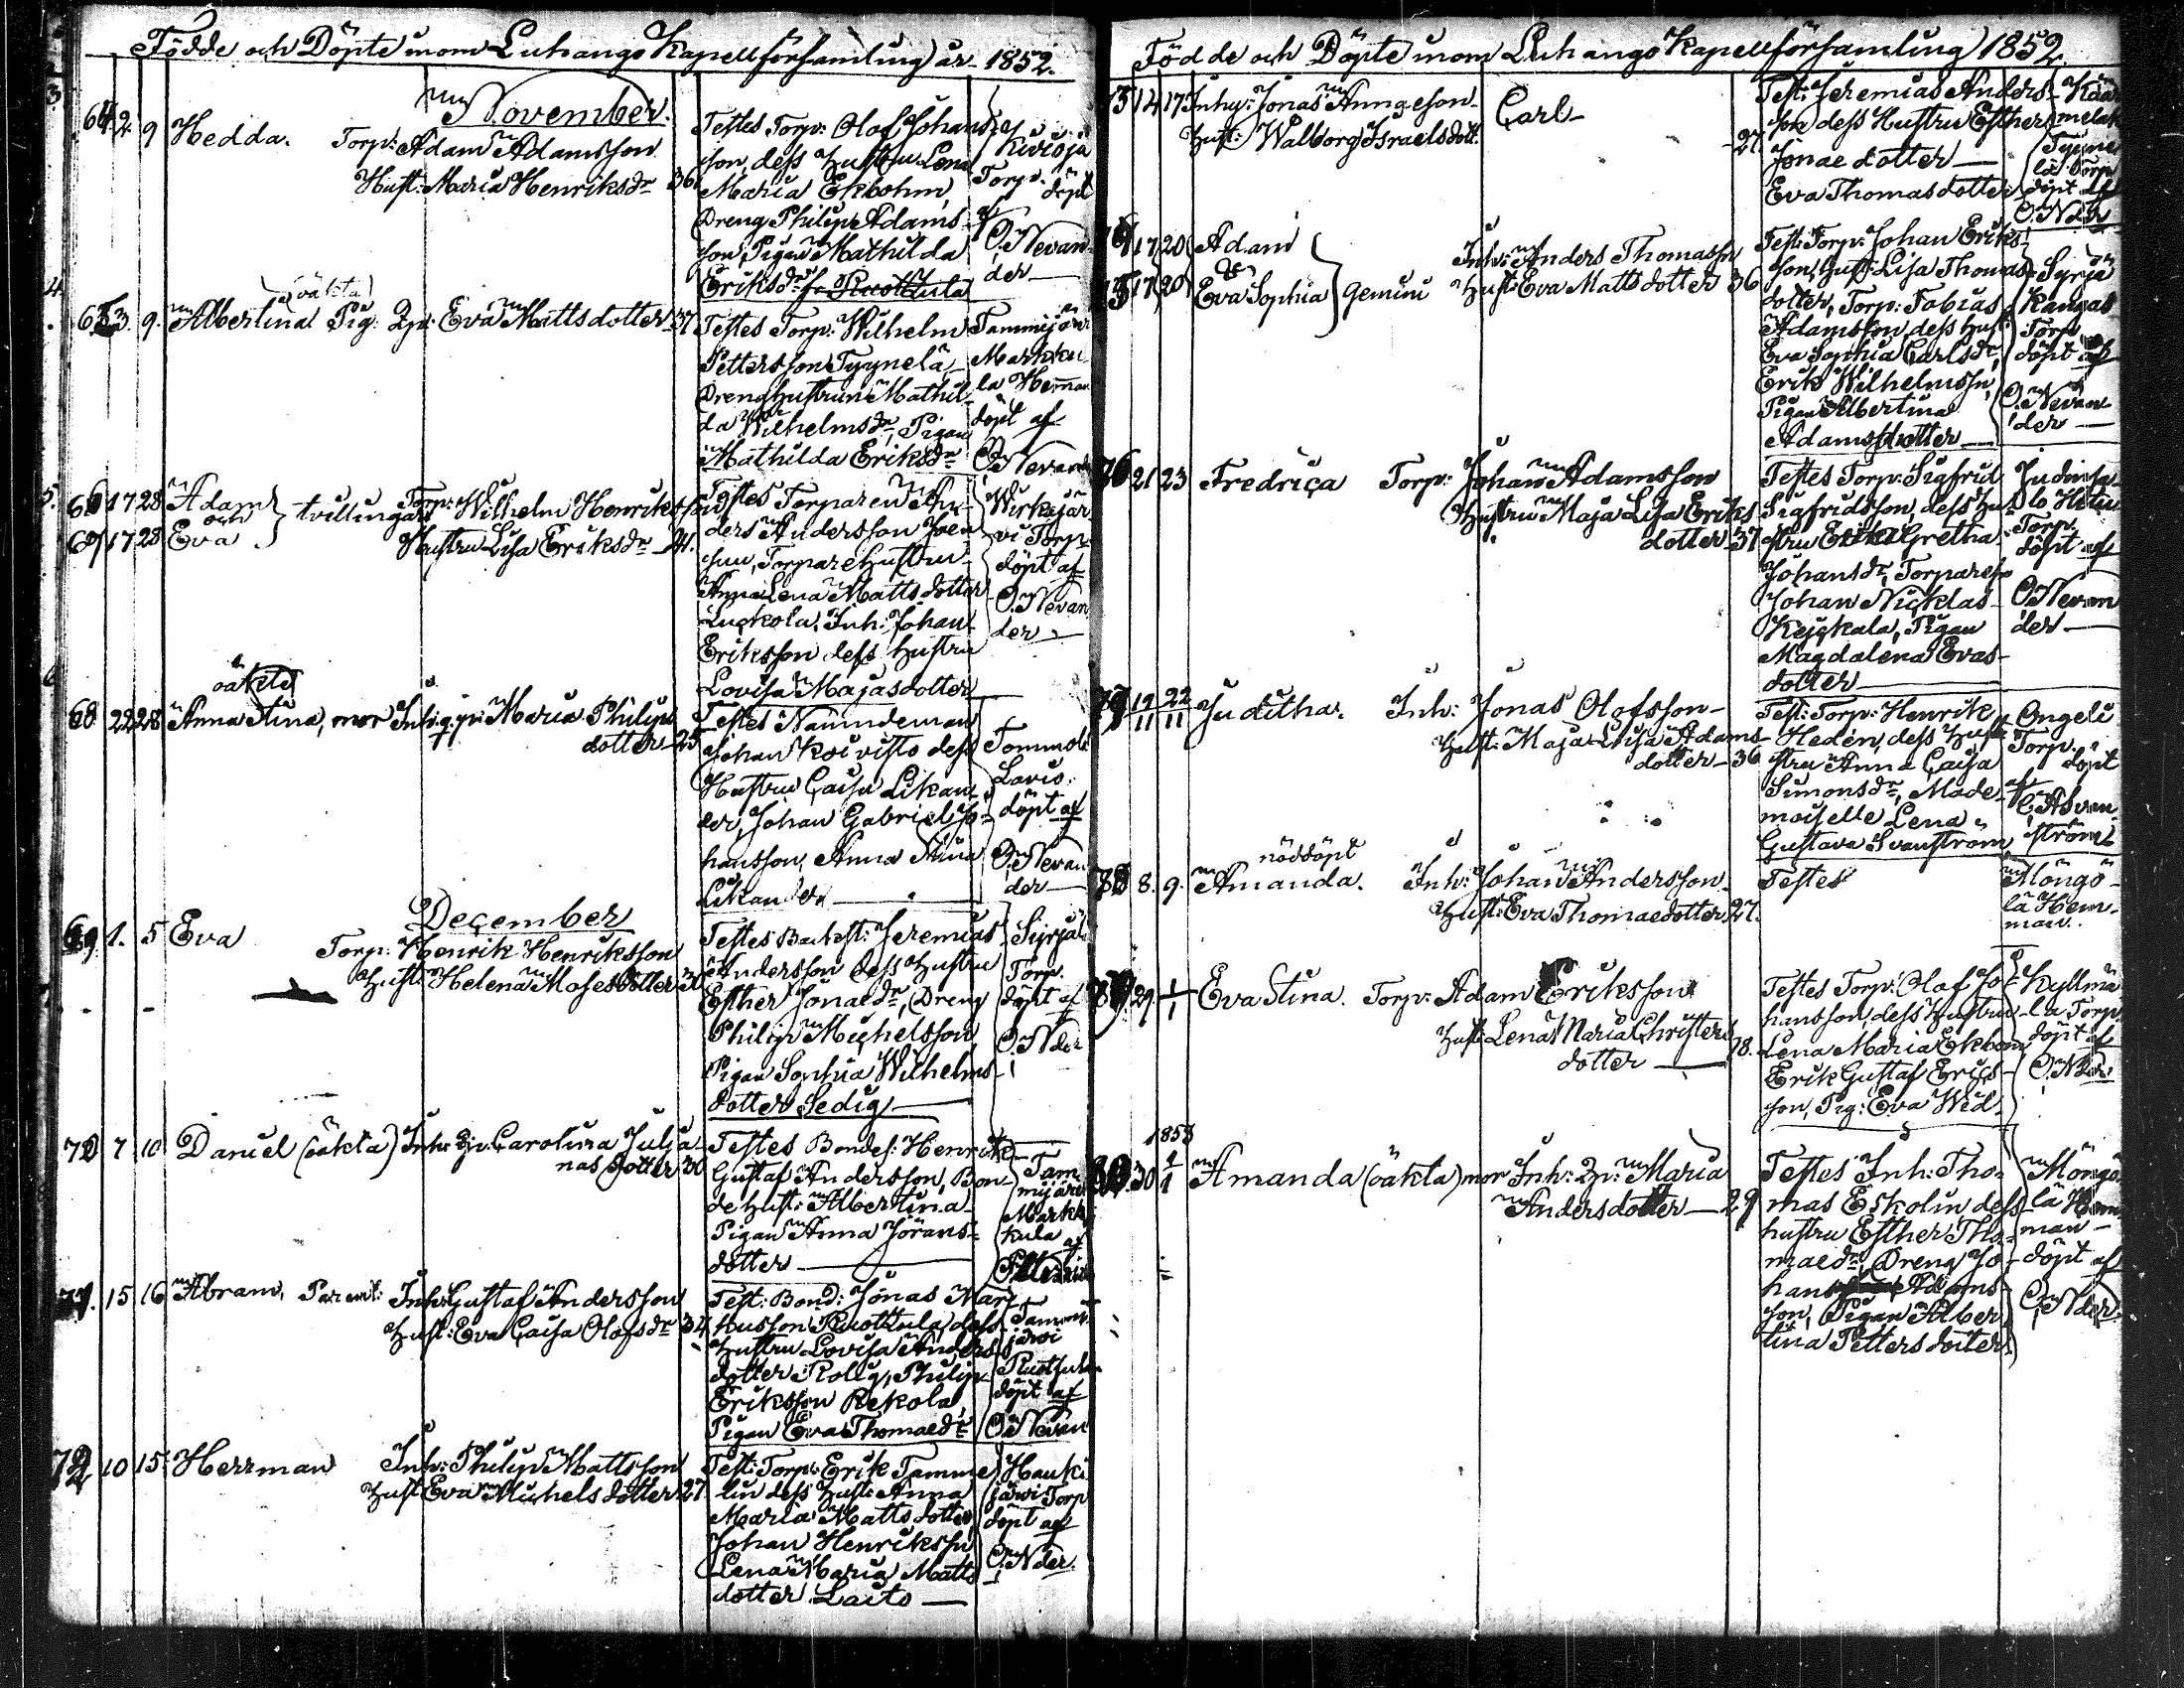 Födde och Döpte inom Luhango Kapellförsamling år 1852.
November.
64 2 9 Hedda. Torp: Adam Adamsson
Hust: Maria Henriksdr 36
Testes Torp: Olof Johans-
son, dess Hustru Lena
Maria Ekbohm,
Dreng Philip Adams-
son, Pigan Mathilda
Eriksdr fr. Ruottula
Torp. döpt
af
O. Nevan-
der
65 3. 9. Albertina (oäkta) Pig: Qp: Eva Mattsdotter 37
Testes Torp: Wilhelm
Pettersson Tyynelä,
Dreng Hustrun Mathil-
da Wilhelmsdr, Pigan
Mathilda Eriksdr
Tammijärvi
Markku
la Heman
döpt af
O. Nevander
66 17 28 Adam
och
67 17 28 Eva
tvillingar
Torp: Wilhelm Henriksson
Hustru Lisa Eriksdr 41.
Testes Torparen An-
ders Andersson
Torpare hustru
Anna Lena Mattsdotter
Luckola. Inh: Johan
Eriksson dess Hustru
Lovisa Majasdotter
Wirkajär-
vi Torp
döpt af
O. Nevan
der
68 22 28 oäkta
Anna Stina, mor Inh. qp: Maria Philips
dotter 25
Testes Nämndeman
Johan Koivisto dess
Hustru Caisa Likan-
der, Johan Gabriel Jo-
hansson, Anna Stina
Likander
döpt af
O. Nevan
der
December
69 1. 5 Eva
Torp: Henrik Henriksson
Hust: Helena Mosesdotter
Testes Jeremias
Andersson dess Hustru
Esther Jonaedr, Dreng
Philip Michelsson
Pigan Sophia Wilhelms-
dotter Ledig
Torp.
döpt af
O. Nder
70 7 10 Daniel (oäkta) Inh: Qp: Carolina Julia
nas dotter 30
Testes Bondes: Henrik
Gustaf Andersson, Bon-
de Hust: Albertina
Pigan Anna Jörans-
dotter
Tam
mijärvi
Markk
kula
af
71. 15 16 Abram, Parent: Inh: Gustaf Andersson
Hust: Eva Caisa Olofsdr 34
Test: Bond: Jonas Mar-
kusson Ruottula, dess
Hustru Lovisa Anders
dotter, Philip
Eriksson Rekola,
Pigan Eva Thomaedr
Tammi
järvi
Ruottula
döpt af
O. Nevan
72 10 15 Herrman Inh: Philip Mattsson
Hust Eva Michelsdotter 27
Test: Torp: Erik Tamme
lin dess Hust: Anna
Maria Mattsdotter,
Johan Henriksson
Lena Maria Matts
dotter Laito
Hauki
järvi Torp
döpt af
O. Nder.
Födde och Döpte inom Luhango Kapellförsamling 1852.
73 14 17 Inhy: Jonas
Hust: Walborg Israelsdott.
Carl
27.
Test: Jeremias Anders-
son dess Hustru Esther
Jonae dotter
Eva Thomasdotter
Tyyne
lä Torp
döpt af
O. Nder
74 17 20 Adam
och
75 17 20 Eva Sophia
Gemini
Inh: Anders Thomasson
Hust: Eva Mattsdotter 36
Test: Torp: Johan Eriks-
son, Hust: Lisa Thomas-
dotter, Torp: Tobias
Adamsson dess Hust:
Eva Sophia Carlsdr,
Erik Wilhelmsson,
Pigan Albertina
Adamsdotter
Syrjä
Kangas
Torp
döpt af
O. Nevan
der
76 21 23 Fredrica Torp: Johan Adamsson
Hustru Maja Lisa Eriks
dotter 37
Testes Torp: Sigfrid
Sigfridsson, dess Hu-
stru Erika Gretha
Johansdr, Torparen
Johan Nicklas
Pigan
Magdalena Evas-
dotter
Judinsa-
lo
Torp.
döpt af
O. Nevan
der
77 19/11 22/11 Juditha. Inh: Jonas Olofsson
Hust: Maja Lisa Adams-
dotter 36
Test: Torp: Henrik
Hedén, dess Hu-
stru Anna Caisa
Simonsdr, Made-
moiselle Lena
Gustava Svanström
Ongeli
Torp.
döpt
af
Svan-
ström
nöddöpt
78 8. 9. Amanda. Inh: Johan Andersson
Hust: Eva Thomaedotter 27.
Testes
Möngö-
lä Hem-
man.
79 29. 1/1 Eva Stina. Torp: Adam Eriksson
Hust Lena Maria Christers
dotter 28.
Testes Torp: Olaf Jo-
hansson, dess Hustru
Lena Maria Ekbom,
Erik Gustaf Erics-
son, Pig: Eva Wid
Kyllmä
la Torp.
döpt af
O. Nder
1853
80. 30 1/1 Amanda (oäkta) mor Inh: Qp: Maria
Andersdotter 29
Testes Inh: Tho-
mas Eskolin dess
hustru Esther Tho-
maedr, Dreng Jo-
han Adams-
son, Pigan Alber-
tina Pettersdotter.
Möngö
lä Hem
man
döpt af
O. Nder.